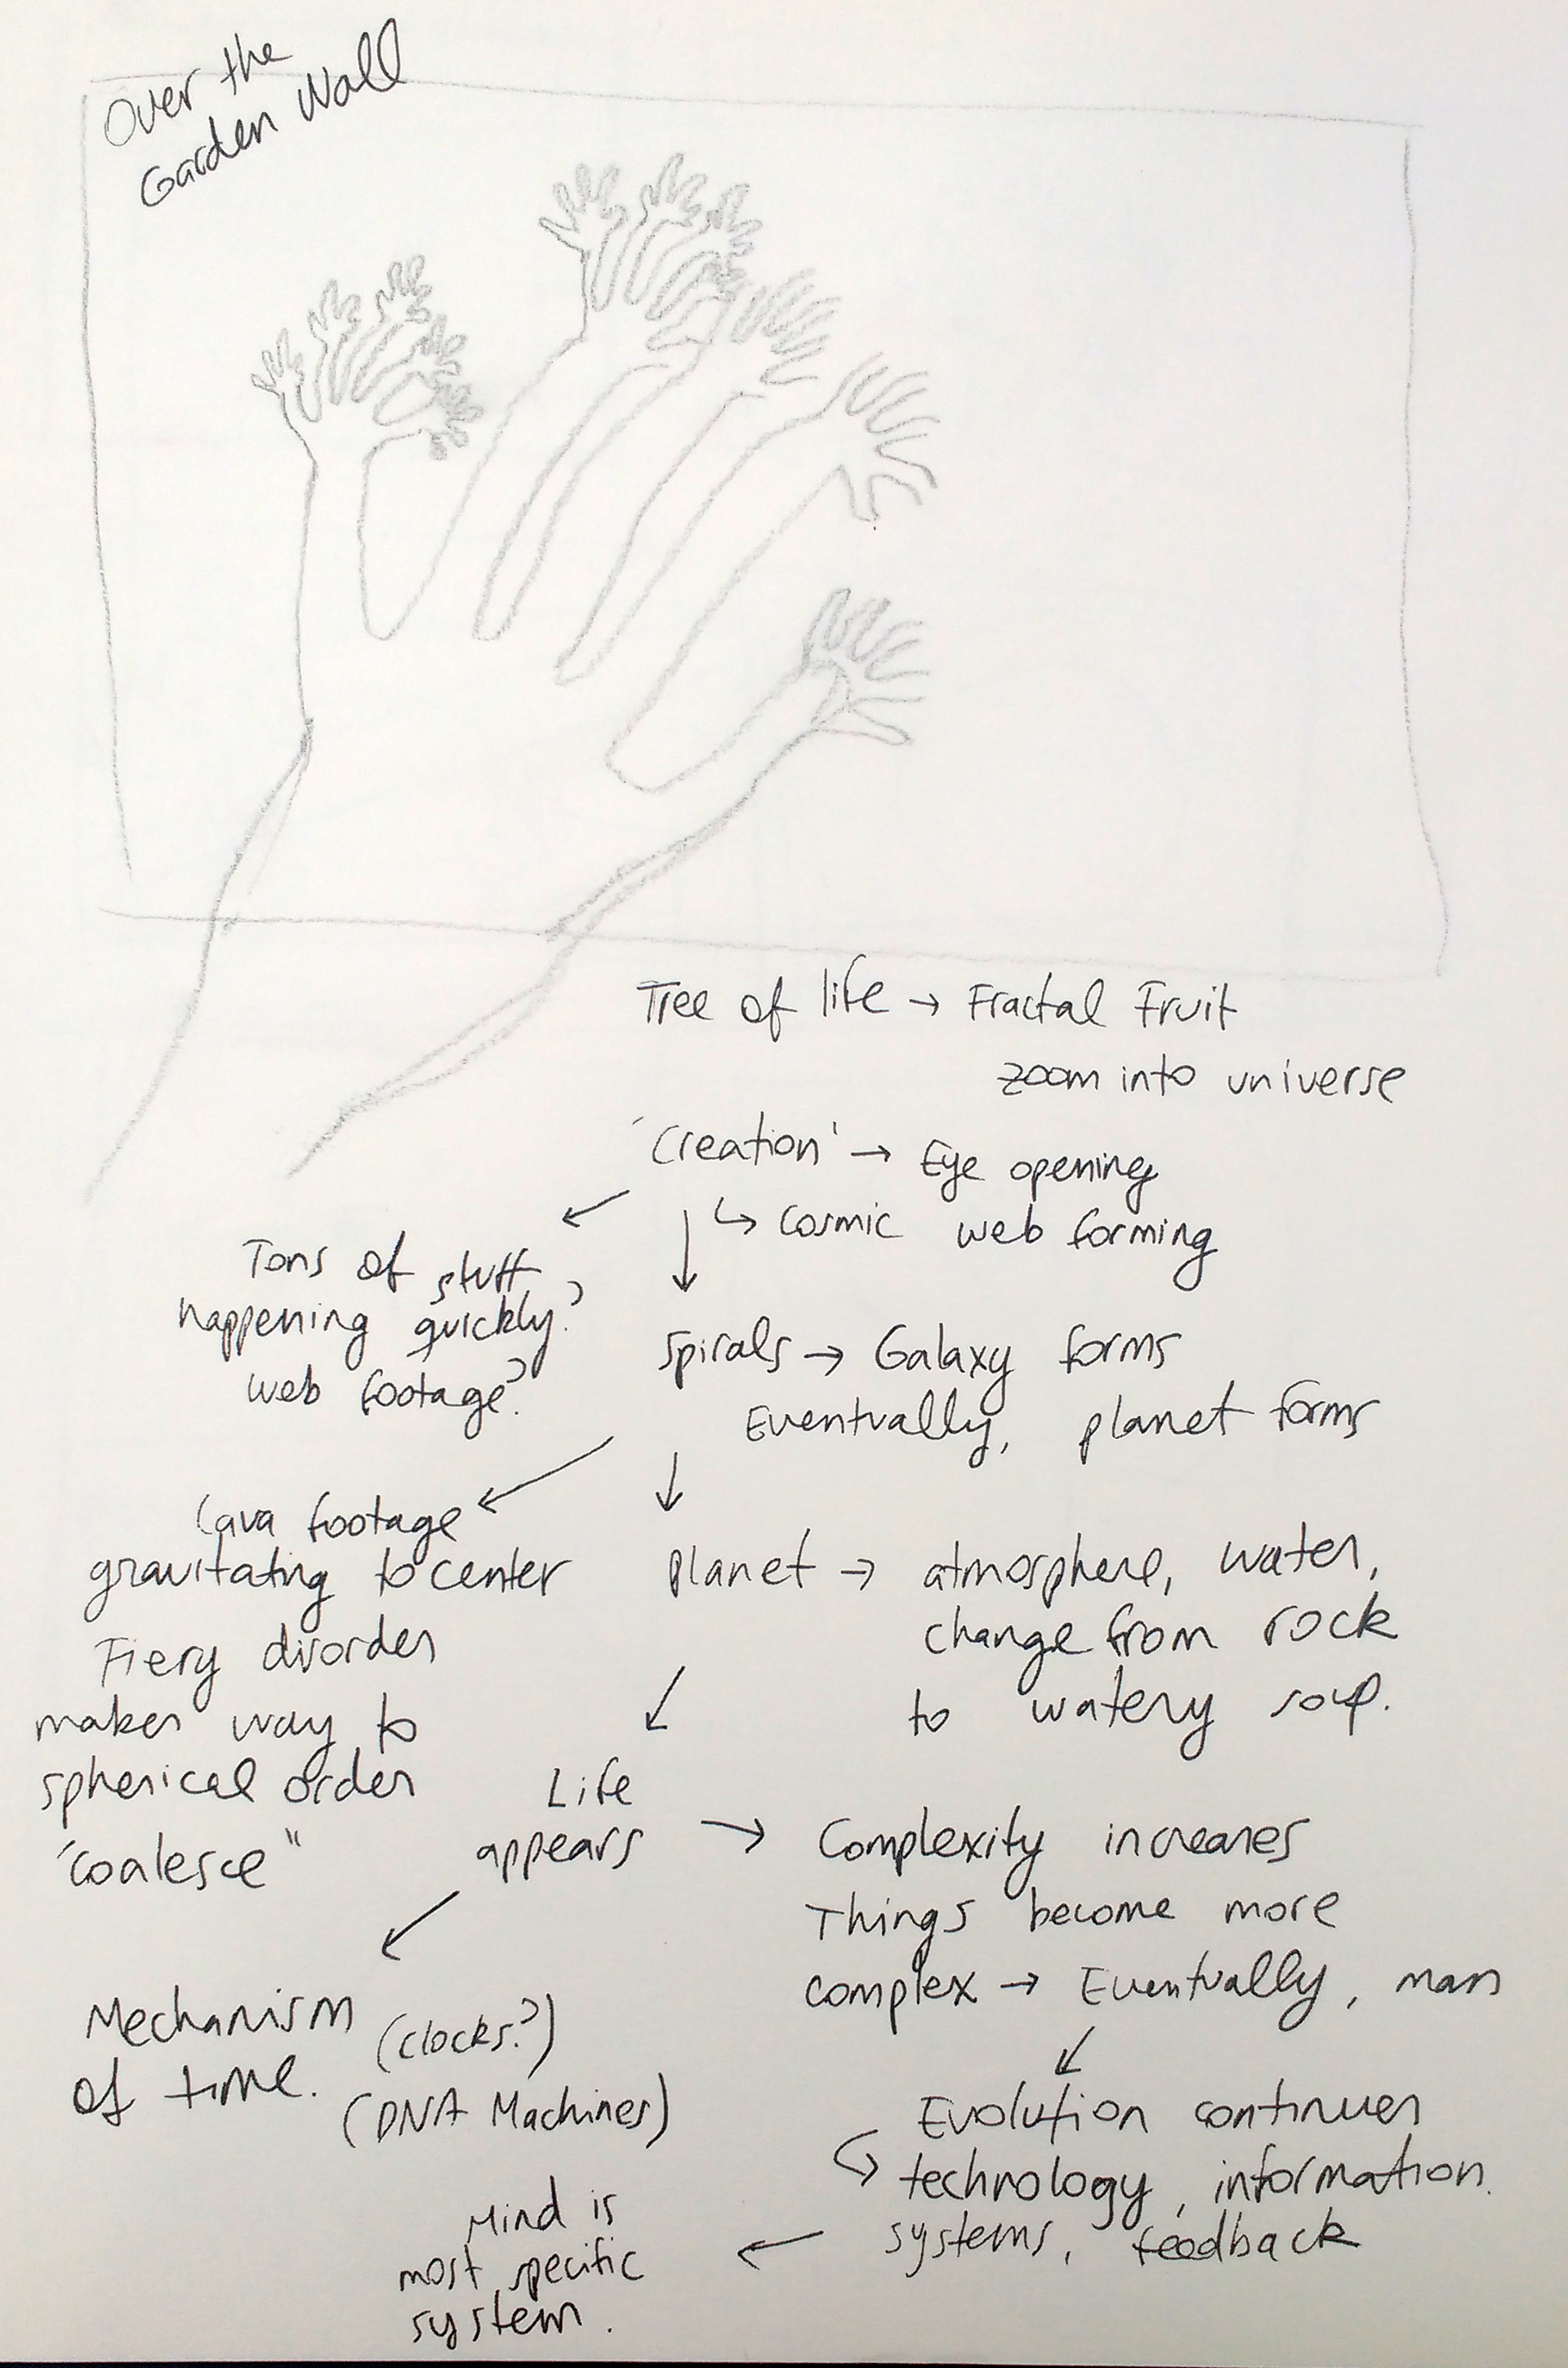 Over the
Garden Wall
Tree of life → Fractal Fruit
zoom into universe
'Creation' → Eye opening
↳ Cosmic web forming
Tons of stuff
happening quickly?
web footage?
Spirals → Galaxy forms
Eventually, planet forms
Lava footage
gravitating to center
Fiery disorder
makes way to
spherical order
"coalesce"
Planet → atmosphere, water,
change from rock
to watery soup.
Life
appears → Complexity increases
Things become more
complex → Eventually, man
Mechanism (clocks?)
of time. (DNA Machines)
Evolution continues
↳ technology, information
systems, feedback
Mind is
most specific
system.